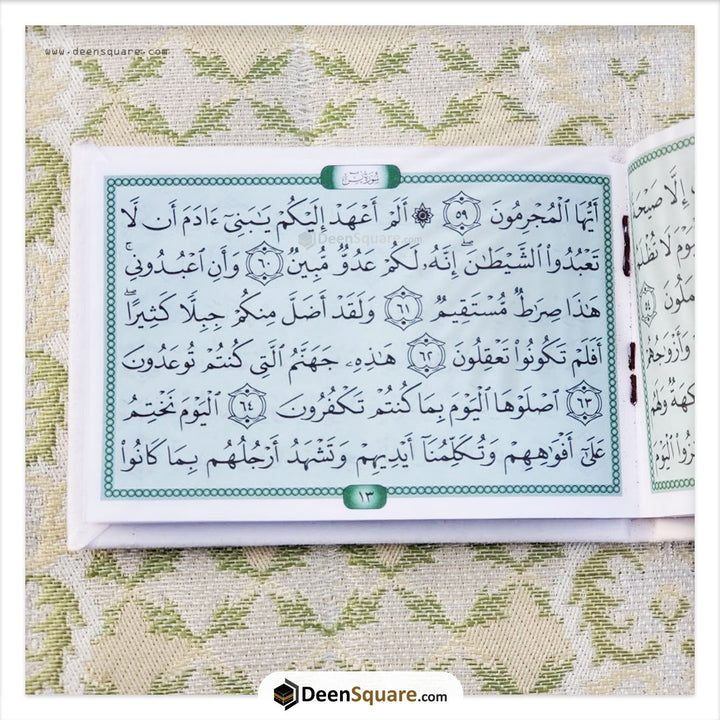 www.deensquare.com
سُورَةُ يسٓ
أَيُّهَا ٱلْمُجْرِمُونَ ٥٩ ۞ أَلَمْ أَعْهَدْ إِلَيْكُمْ يَٰبَنِىٓ ءَادَمَ أَن لَّا
تَعْبُدُوا۟ ٱلشَّيْطَٰنَ ۖ إِنَّهُۥ لَكُمْ عَدُوٌّ مُّبِينٌ ٦٠ وَأَنِ ٱعْبُدُونِى ۚ
هَٰذَا صِرَٰطٌ مُّسْتَقِيمٌ ٦١ وَلَقَدْ أَضَلَّ مِنكُمْ جِبِلًّا كَثِيرًا ۖ
أَفَلَمْ تَكُونُوا۟ تَعْقِلُونَ ٦٢ هَٰذِهِۦ جَهَنَّمُ ٱلَّتِى كُنتُمْ تُوعَدُونَ
٦٣ ٱصْلَوْهَا ٱلْيَوْمَ بِمَا كُنتُمْ تَكْفُرُونَ ٦٤ ٱلْيَوْمَ نَخْتِمُ
عَلَىٰٓ أَفْوَٰهِهِمْ وَتُكَلِّمُنَآ أَيْدِيهِمْ وَتَشْهَدُ أَرْجُلُهُم بِمَا كَانُوا۟
١٣
DeenSquare.com
DeenSquare.com